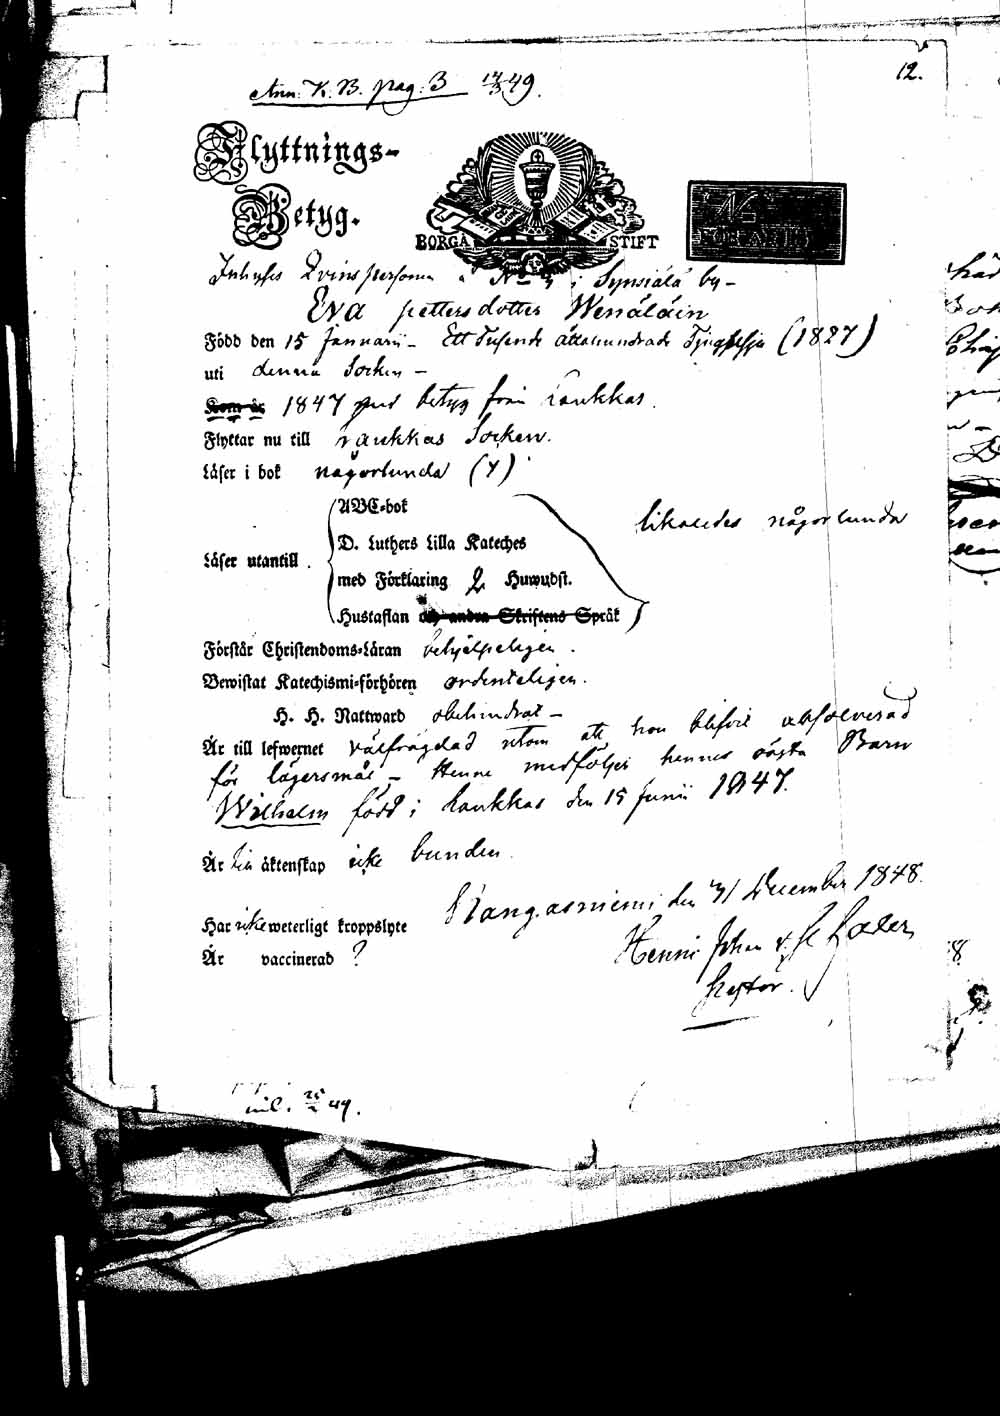 12.
Ann. K. B. pag. 3 49.
Flyttnings-
Betyg.
BORGÅ STIFT
Inhyses Qvinspersonen No 4 i Synsiälä by -
Eva pettersdotter Wenäläin
Född den 15 Januarii - Ett Tusende åttahundrade Tjugusju (1827)
uti denna Socken -
Kom år 1847 med betyg från Haukkas.
Flyttar nu till Haukkas Socken.
Läser i bok någorlunda (7)
ABC-bok
likaledes någorlunda
D. Luthers Lilla Kateches
Läser utantill.
med Förklaring 2 Huwudst.
Hustaflan och andra Skriftens Språk
Förstår Christendoms-Läran behjelpeligen.
Bewistat Katechismi-förhören ordenteligen.
H. H. Nattward obehindrat -
Är till lefwernet välfrägdad utom att hon blifvit absolverad
för lägersmål - Henne medföljer hennes oägta Barn
Wilhelm född i Haukkas den 15 Junii 1847.
Är till äktenskap icke bunden.
Kangasniemi den 31 December 1848.
Har icke weterligt kroppslyte
Henric Johan
Är vaccinerad ?
Pastor.
49.